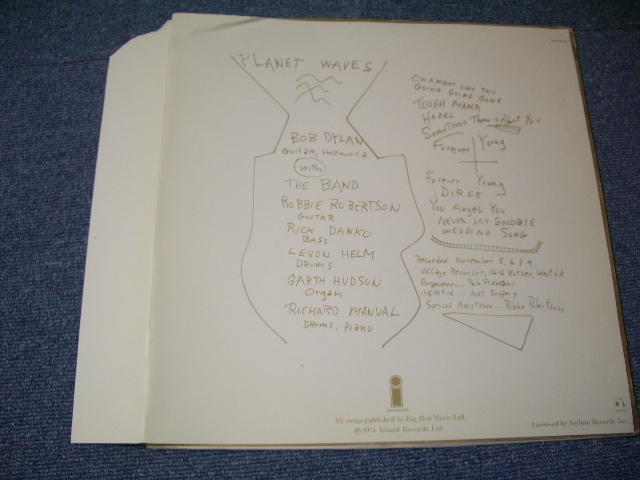 PLANET WAVES
BOB DYLAN
GUITAR, HARMONICA
with
THE BAND
ROBBIE ROBERTSON
GUITAR
RICK DANKO
BASS
LEVON HELM
DRUMS
GARTH HUDSON
Organ
RICHARD MANUAL
DRUMS, PIANO
ON A NIGHT LIKE THIS
GOING GOING GONE
TOUGH MAMA
HAZEL
SOMETHING There is About YOU
Forever Young
Forever Young
DIRGE
You Angel You
NEVER SAY GOODBYE
WEDDING SONG
Recorded November 5, 6 & 9
Village Recorder, 1616 Butler, West LA
Engineer... Rob
Assistant... NAT Jeffery
Special Assistance... Robbie Robertson
i
All songs published by Big Ben Music Ltd.
℗ 1974 Island Records Ltd.
Licensed by Asylum Records Inc.